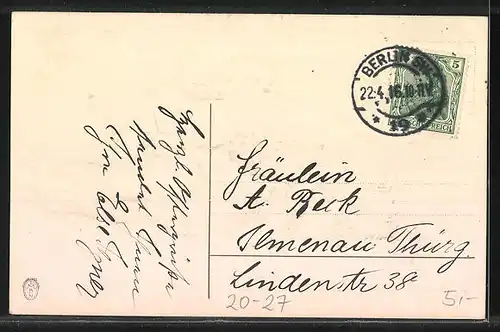 BERLIN SW
22.4.16.10-11V.
* 19 *
5
REICH
Herzl. Ostergrüße
sendet Ihnen
Fräulein
A. Reck
Ilmenau Thürg.
Lindenstr 38a
20-27
5,-